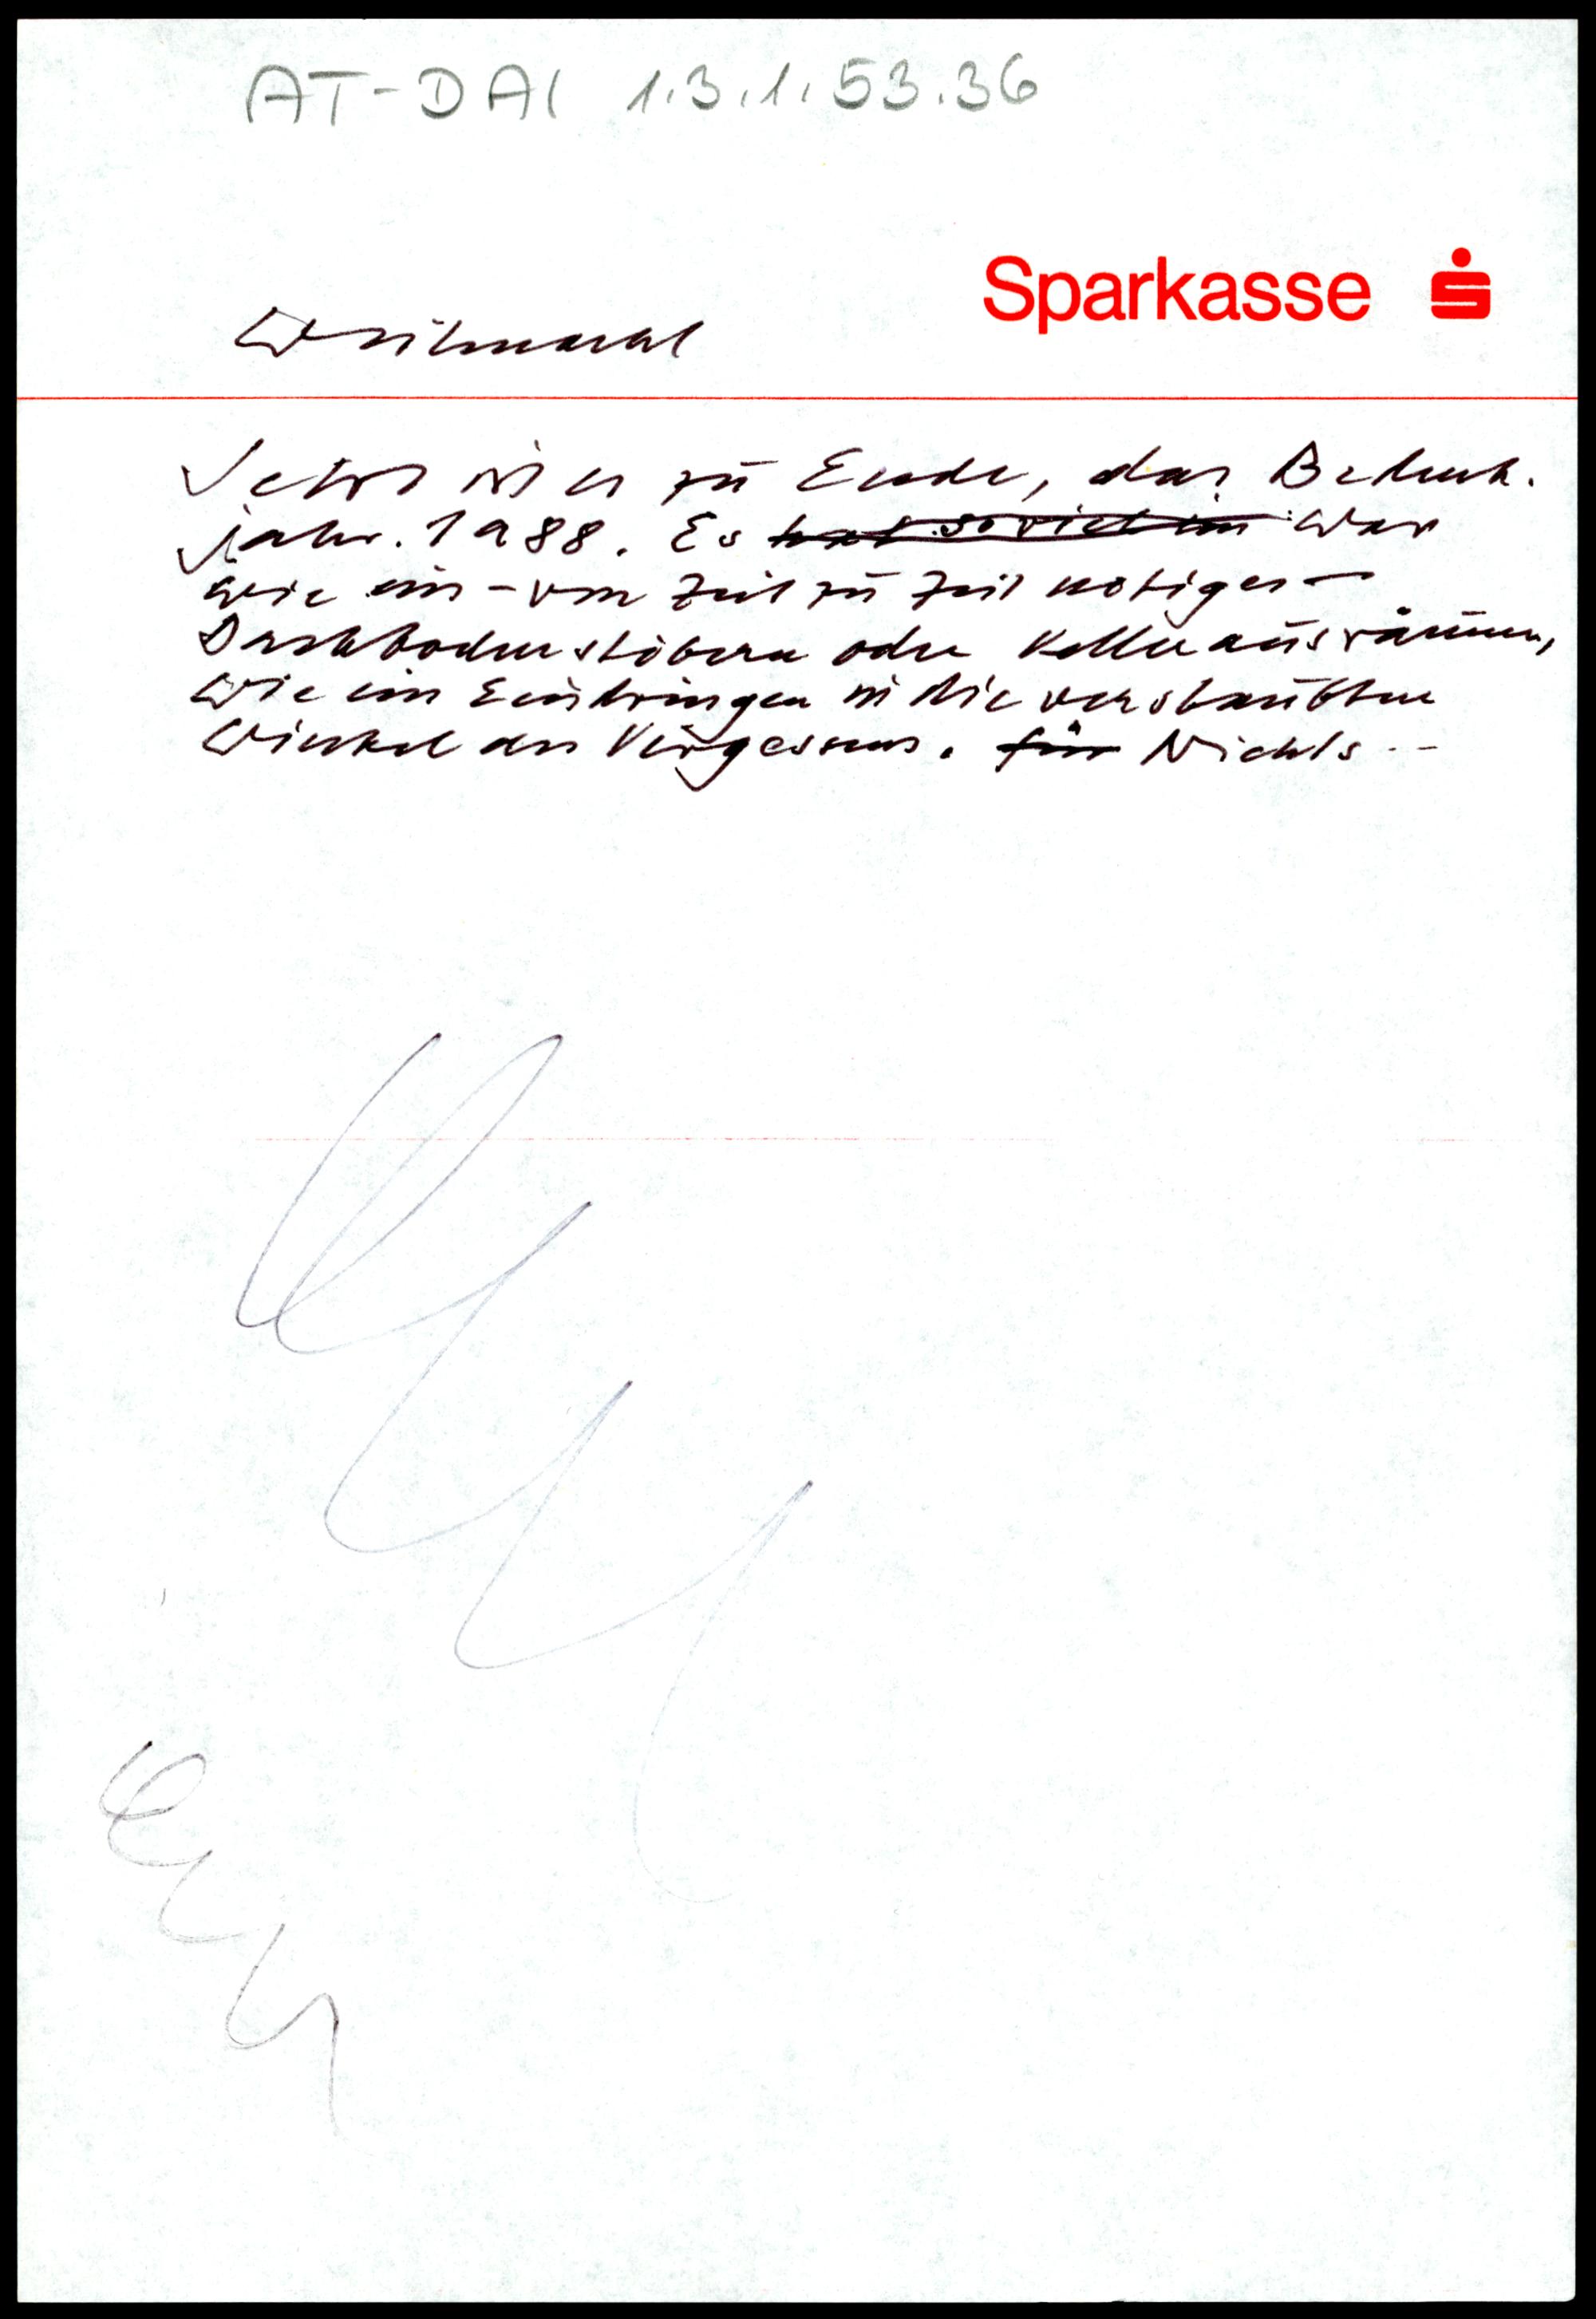 AT-DAI 1.3.1.53.36
Sparkasse
Weihnacht
Jetzt ist es zu Ende, das Bedenk-
jahr. 1988. Es hat soviel im war
wie ein - von Zeit zu Zeit nötiges -
Dachbodenstöbern oder Kellerausräumen,
wie ein Eindringen in die verstaubten
Winkel des Vergessens. für Nichts --